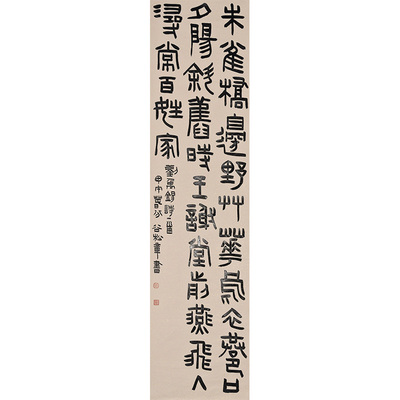 朱雀橋邊野艸華烏衣巷口
夕陽斜舊時王謝堂前燕飛入
尋常百姓家
劉禹錫詩一首
甲午 谷松章書